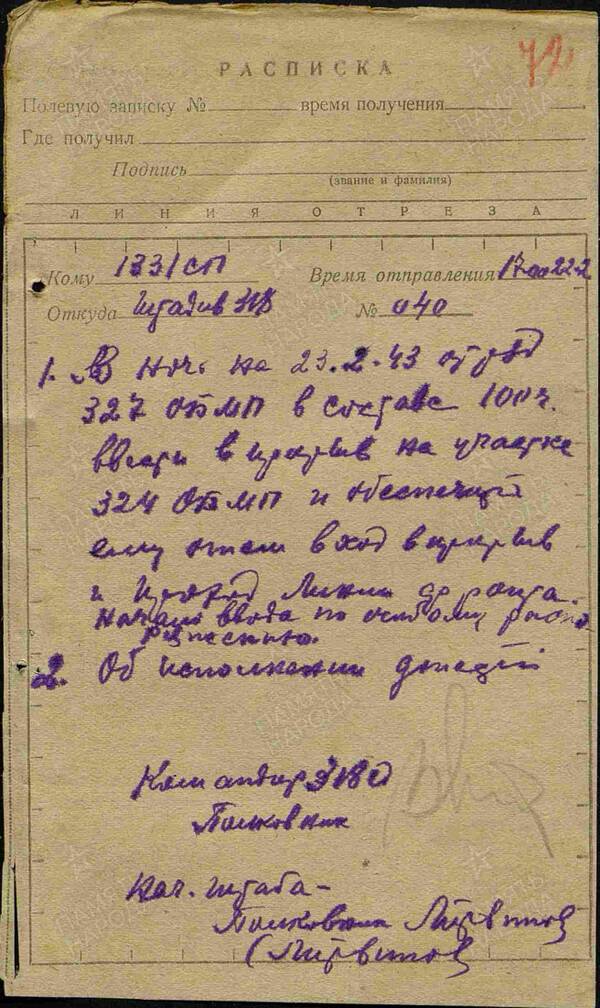 72
РАСПИСКА
Полевую записку № время получения
Где получил
Подпись
(звание и фамилия)
ЛИНИЯ ОТРЕЗА
Кому 1331 СП Время отправления 17.00 22.2
Откуда Штадив 318 № 040
1. В ночь на 23.2.43 отряд
327 ОБМП в составе 100ч.
ввести в прорыв на участке
324 ОБМП и обеспечить
ему этим вход в прорыв
и проход линии фронта.
Начало ввода по особому распо
ряжению.
2. Об исполнении донести
Командир 318
Полковник
Нач. штаба -
Полковник